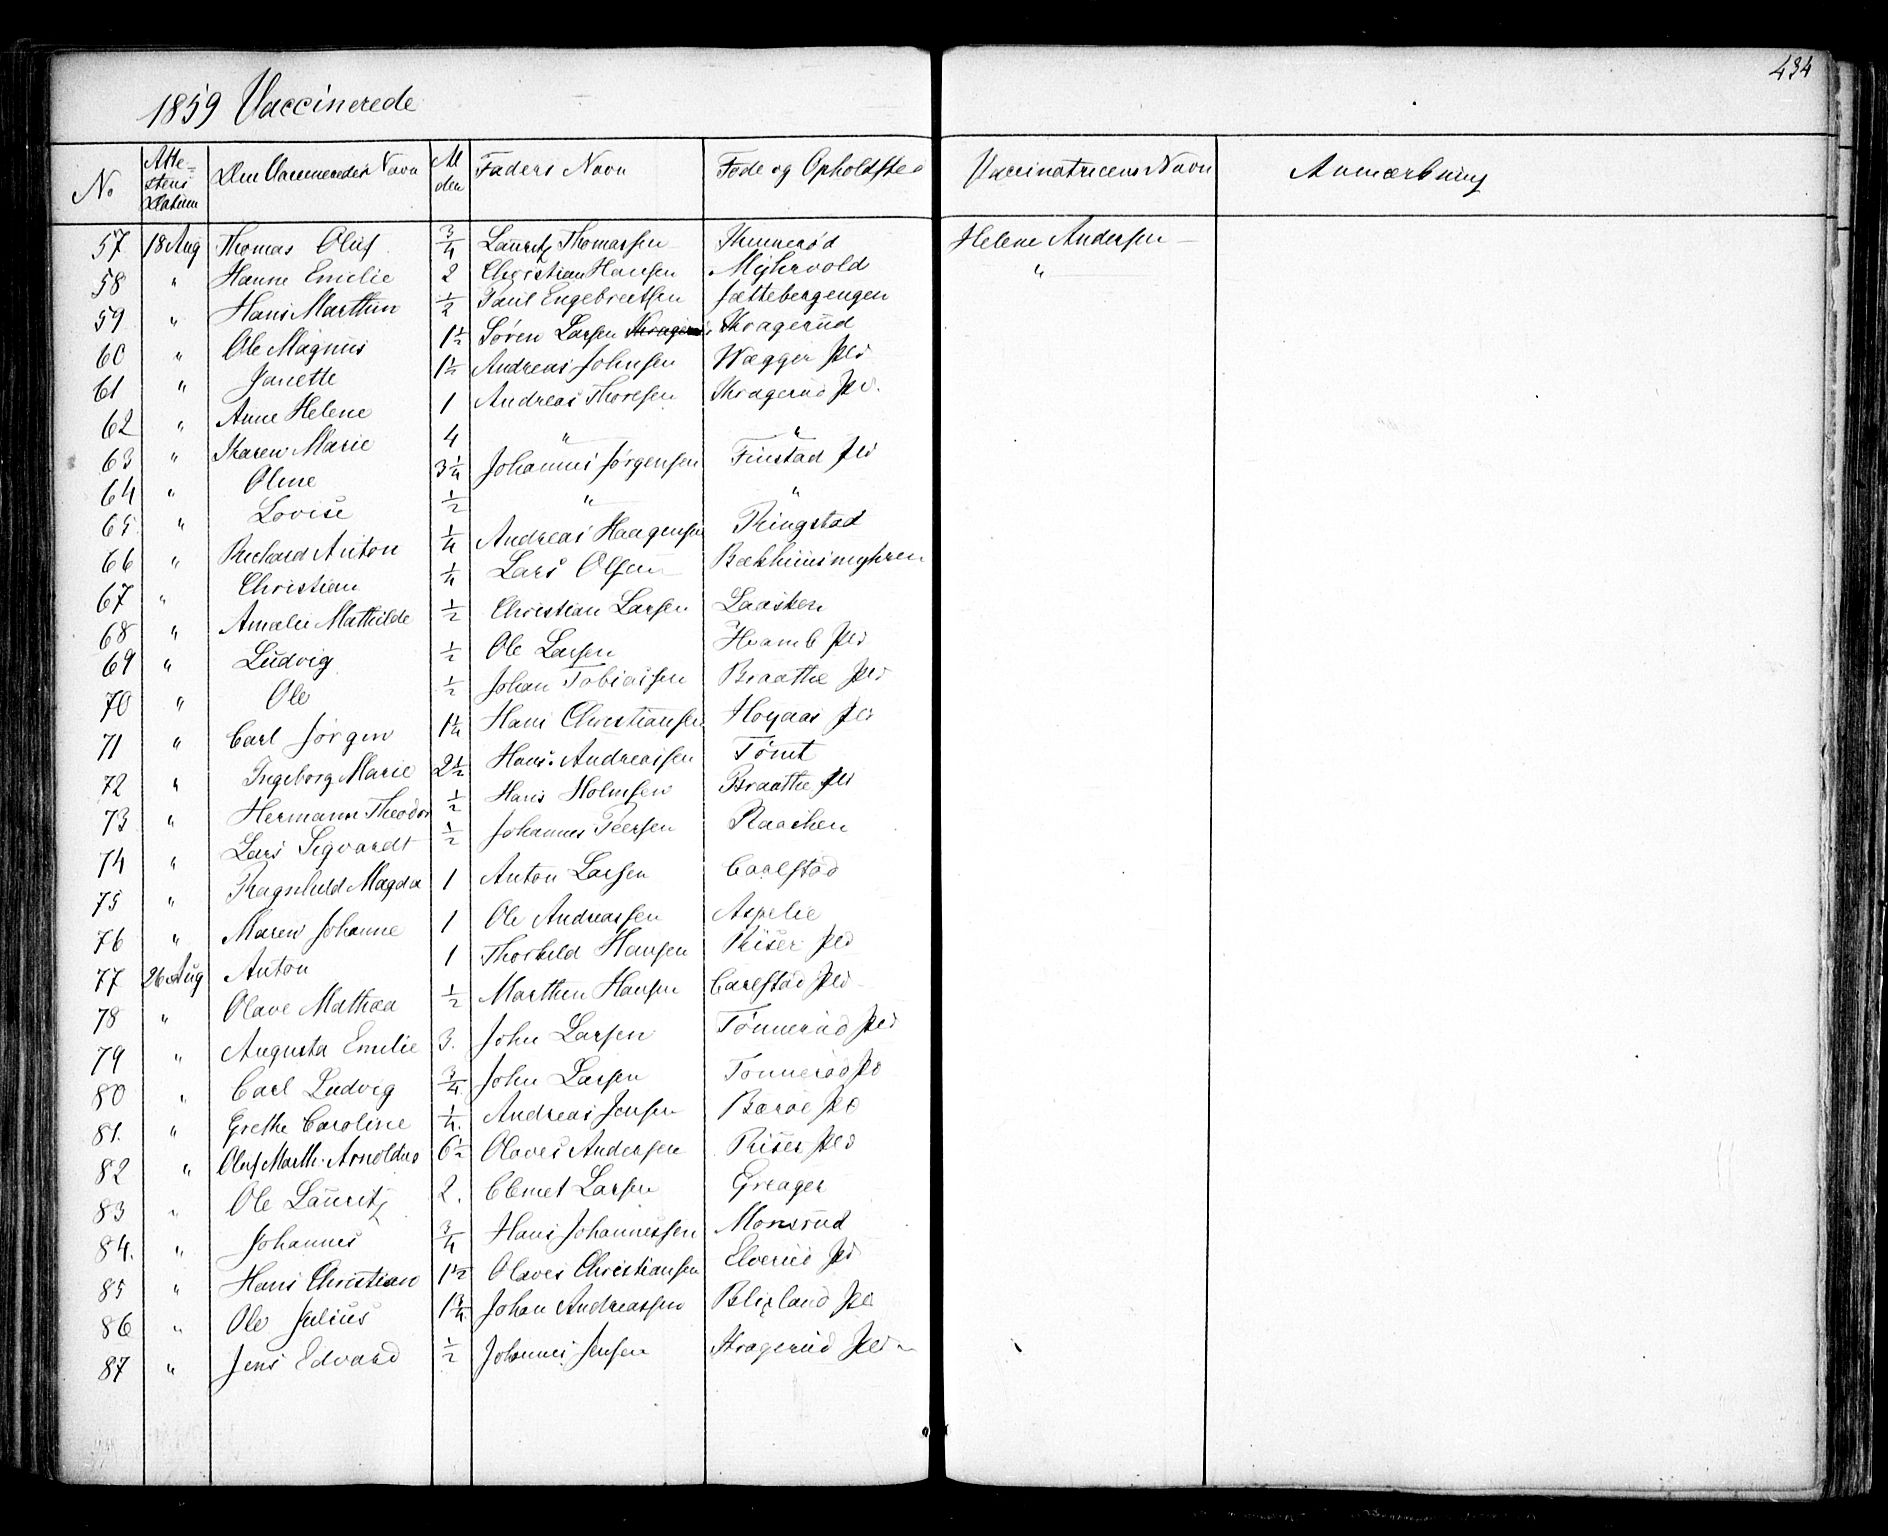 434
1859 Vaccinerede
No Attestens Datum Den Vaccineredes Navn Alderen Faders Navn Føde og Opholdsted Vaccinatricens Navn Anmærkning
57 18 Aug Thomas Oluf 3/4 Lauritz Thomassen Helene Andersen
58 " Hanne Emilie 2 Christian Hansen Myhrvold "
59 " Hans Marthin 1/2 Paul Engebretsen Jættebergengen
60 " Ole Magnus 1 1/2 Søren Larsen Kragerud
61 " Janette 1 1/2 Andreas Johnsen Vægger Pld
62 " Anne Helene 1 Andreas Thoresen Kragerud Pld.
63 " Karen Marie 4 " "
64 " Oline 3 1/4 Johannes Jørgensen Finstad Pld
65 " Lovise 1/2 " "
66 " Richard Anton 1/4 Andreas Haagensen Ringstad
67 " Christian 1/4 Lars Olsen Bækkhuusmyhren
68 " Amalie Mathilde 1/2 Christian Larsen Laasken
69 " Ludvig 1/2 Ole Larsen Hvamb Pld
70 " Ole 1/2 Johan Tobiassen Braathe Pld
71 " Carl Jørgen 1 1/4 Hans Christiansen Hoyaas Pld
72 " Ingeborg Marie 2 1/2 Hans Andreassen Tømt
73 " Hermann Theodor 1/2 Hans Holmsen Braathe Pld
74 " Lars Sigvardt 1/2 Johannes Peersen Raaken
75 " Ragnhild Magda 1 Anton Larsen Carlstad
76 " Maren Johanne 1 Ole Andreassen Aspelie
77 26 Aug Anton 1 Thorkild Hansen Riser Pld
78 " Olave Mathea 1/2 Marthin Hansen Carlstad Pld
79 " Augusta Emilie 3. John Larsen Tønnerud Pld
80 " Carl Ludvig 3/4 John Larsen Tonnerød Pld
81. " Grethe Caroline 1/4. Andreas Jensen Baroe Pld
82 " Oluf Marth. Arnoldus 6 1/2 Olaves Andersen Riser Pld
83 " Ole Lauritz 2. Clemet Larsen Greager
84. " Johannes 3/4 Hans Johannessen Monsrud
85 " Hans Christian 1 1/2 Olaves Christiansen Elverud Pld
86 " Ole Julius 1 3/4 Johan Andreassen Blixland Pld
87 " Jens Edvard 1/2 Johannes Jensen Kragerud Pld